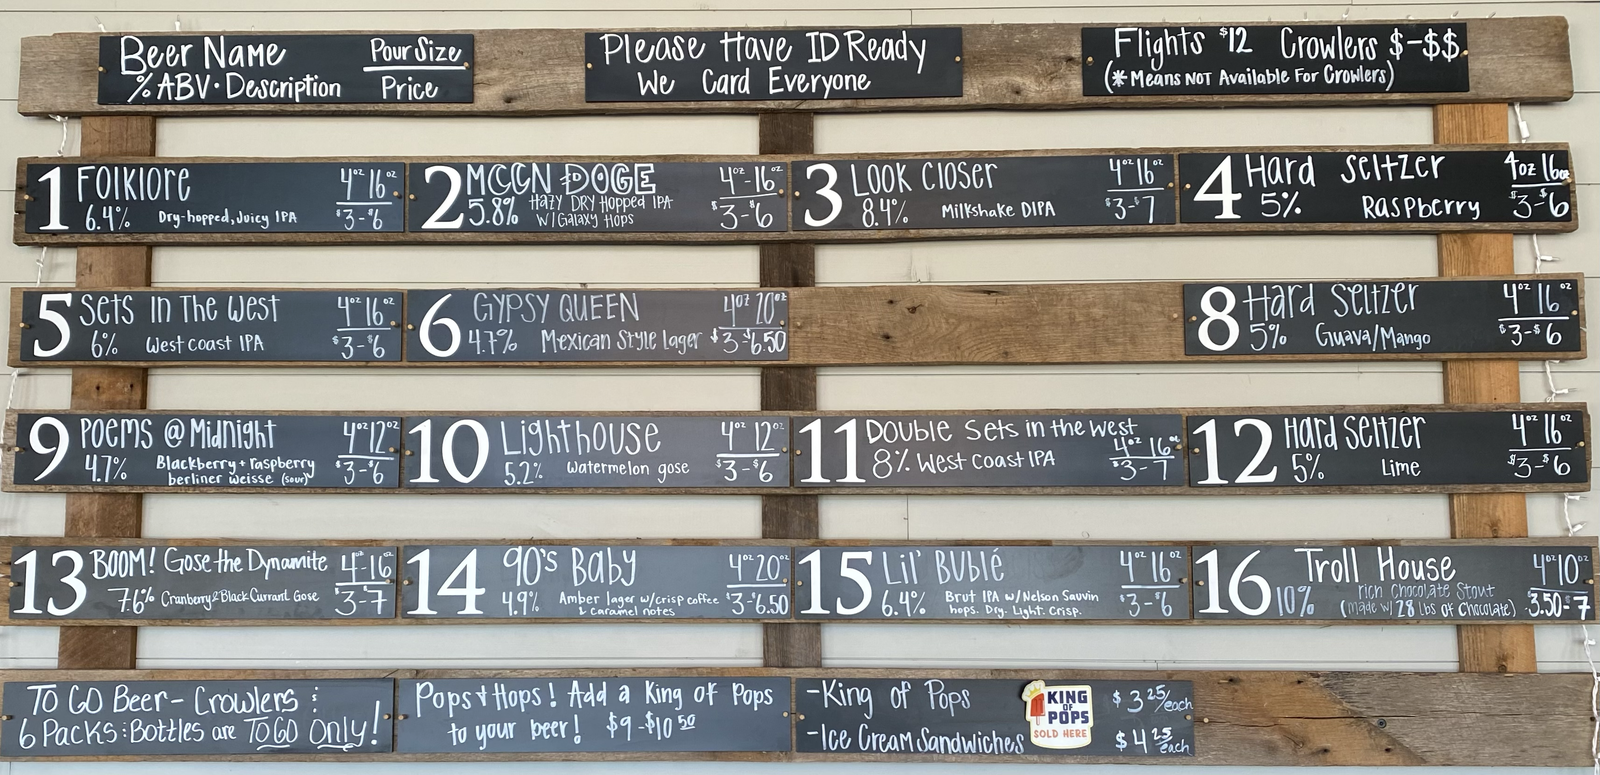 Beer Name
% ABV • Description
Pour Size
Price
Please Have ID Ready
We Card Everyone
Flights $12 Crowlers $-$$
(* Means NOT Available For Crowlers)
1 Folklore
6.4% Dry-hopped, Juicy IPA
4oz 16oz
$3-$6
2 MCCN DOGE
5.8% Hazy Dry Hopped IPA
w/ Galaxy Hops
4oz-16oz
$3-$6
3 Look Closer
8.4% Milkshake DIPA
4oz 16oz
$3-$7
4 Hard Seltzer
5% Raspberry
4oz 16oz
$3-$6
5 Sets In The West
6% West Coast IPA
4oz 16oz
$3-$6
6 GYPSY QUEEN
4.7% Mexican Style Lager
4oz 20oz
$3-$6.50
8 Hard Seltzer
5% Guava/Mango
4oz 16oz
$3-$6
9 Poems @ Midnight
4.7% Blackberry + raspberry
berliner weisse (sour)
4oz 12oz
$3-$6
10 Lighthouse
5.2% Watermelon gose
4oz 12oz
$3-$6
11 Double Sets in the West
8% West Coast IPA
4oz 16oz
$3-7
12 Hard Seltzer
5% Lime
4oz 16oz
$3-$6
13 BOOM! Gose the Dynamite
7.6% Cranberry & Black Currant Gose
4oz-16oz
$3-7
14 90's Baby
4.9% Amber lager w/crisp coffee
& caramel notes
4oz 20oz
$3-$6.50
15 Lil' Bublé
6.4% Brut IPA w/Nelson Sauvin
hops. Dry. Light. Crisp.
4oz 16oz
$3-$6
16 Troll House
10% rich Chocolate Stout
(made w/ 28 lbs of Chocolate)
4oz 10oz
$3.50-$7
TO GO Beer - Crowlers :
6 Packs : Bottles are TO GO Only!
Pops & Hops! Add a King of Pops
to your beer! $9-$10.50
-King of Pops
$3.25/each
-Ice Cream Sandwiches
$4.25/each
KING
OF
POPS
SOLD HERE